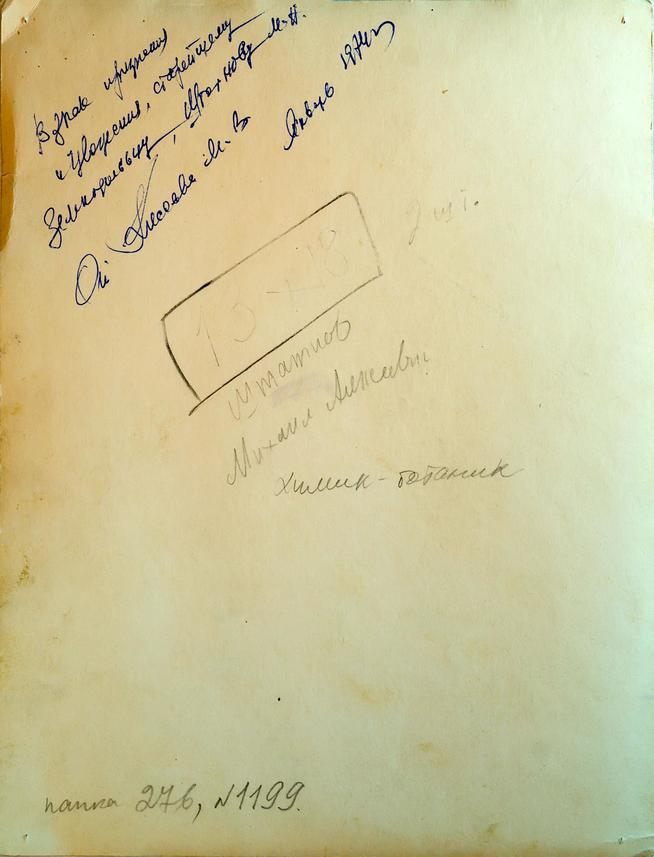 В знак признания
и уважения, старейшему
Земледельцу, Штатнову М.А.
От Елисеева М.В.
Январь 1974 г.
2 шт.
13 × 18
Штатнов
Михаил Алексеевич
химик-ботаник
папка 276, N1199.